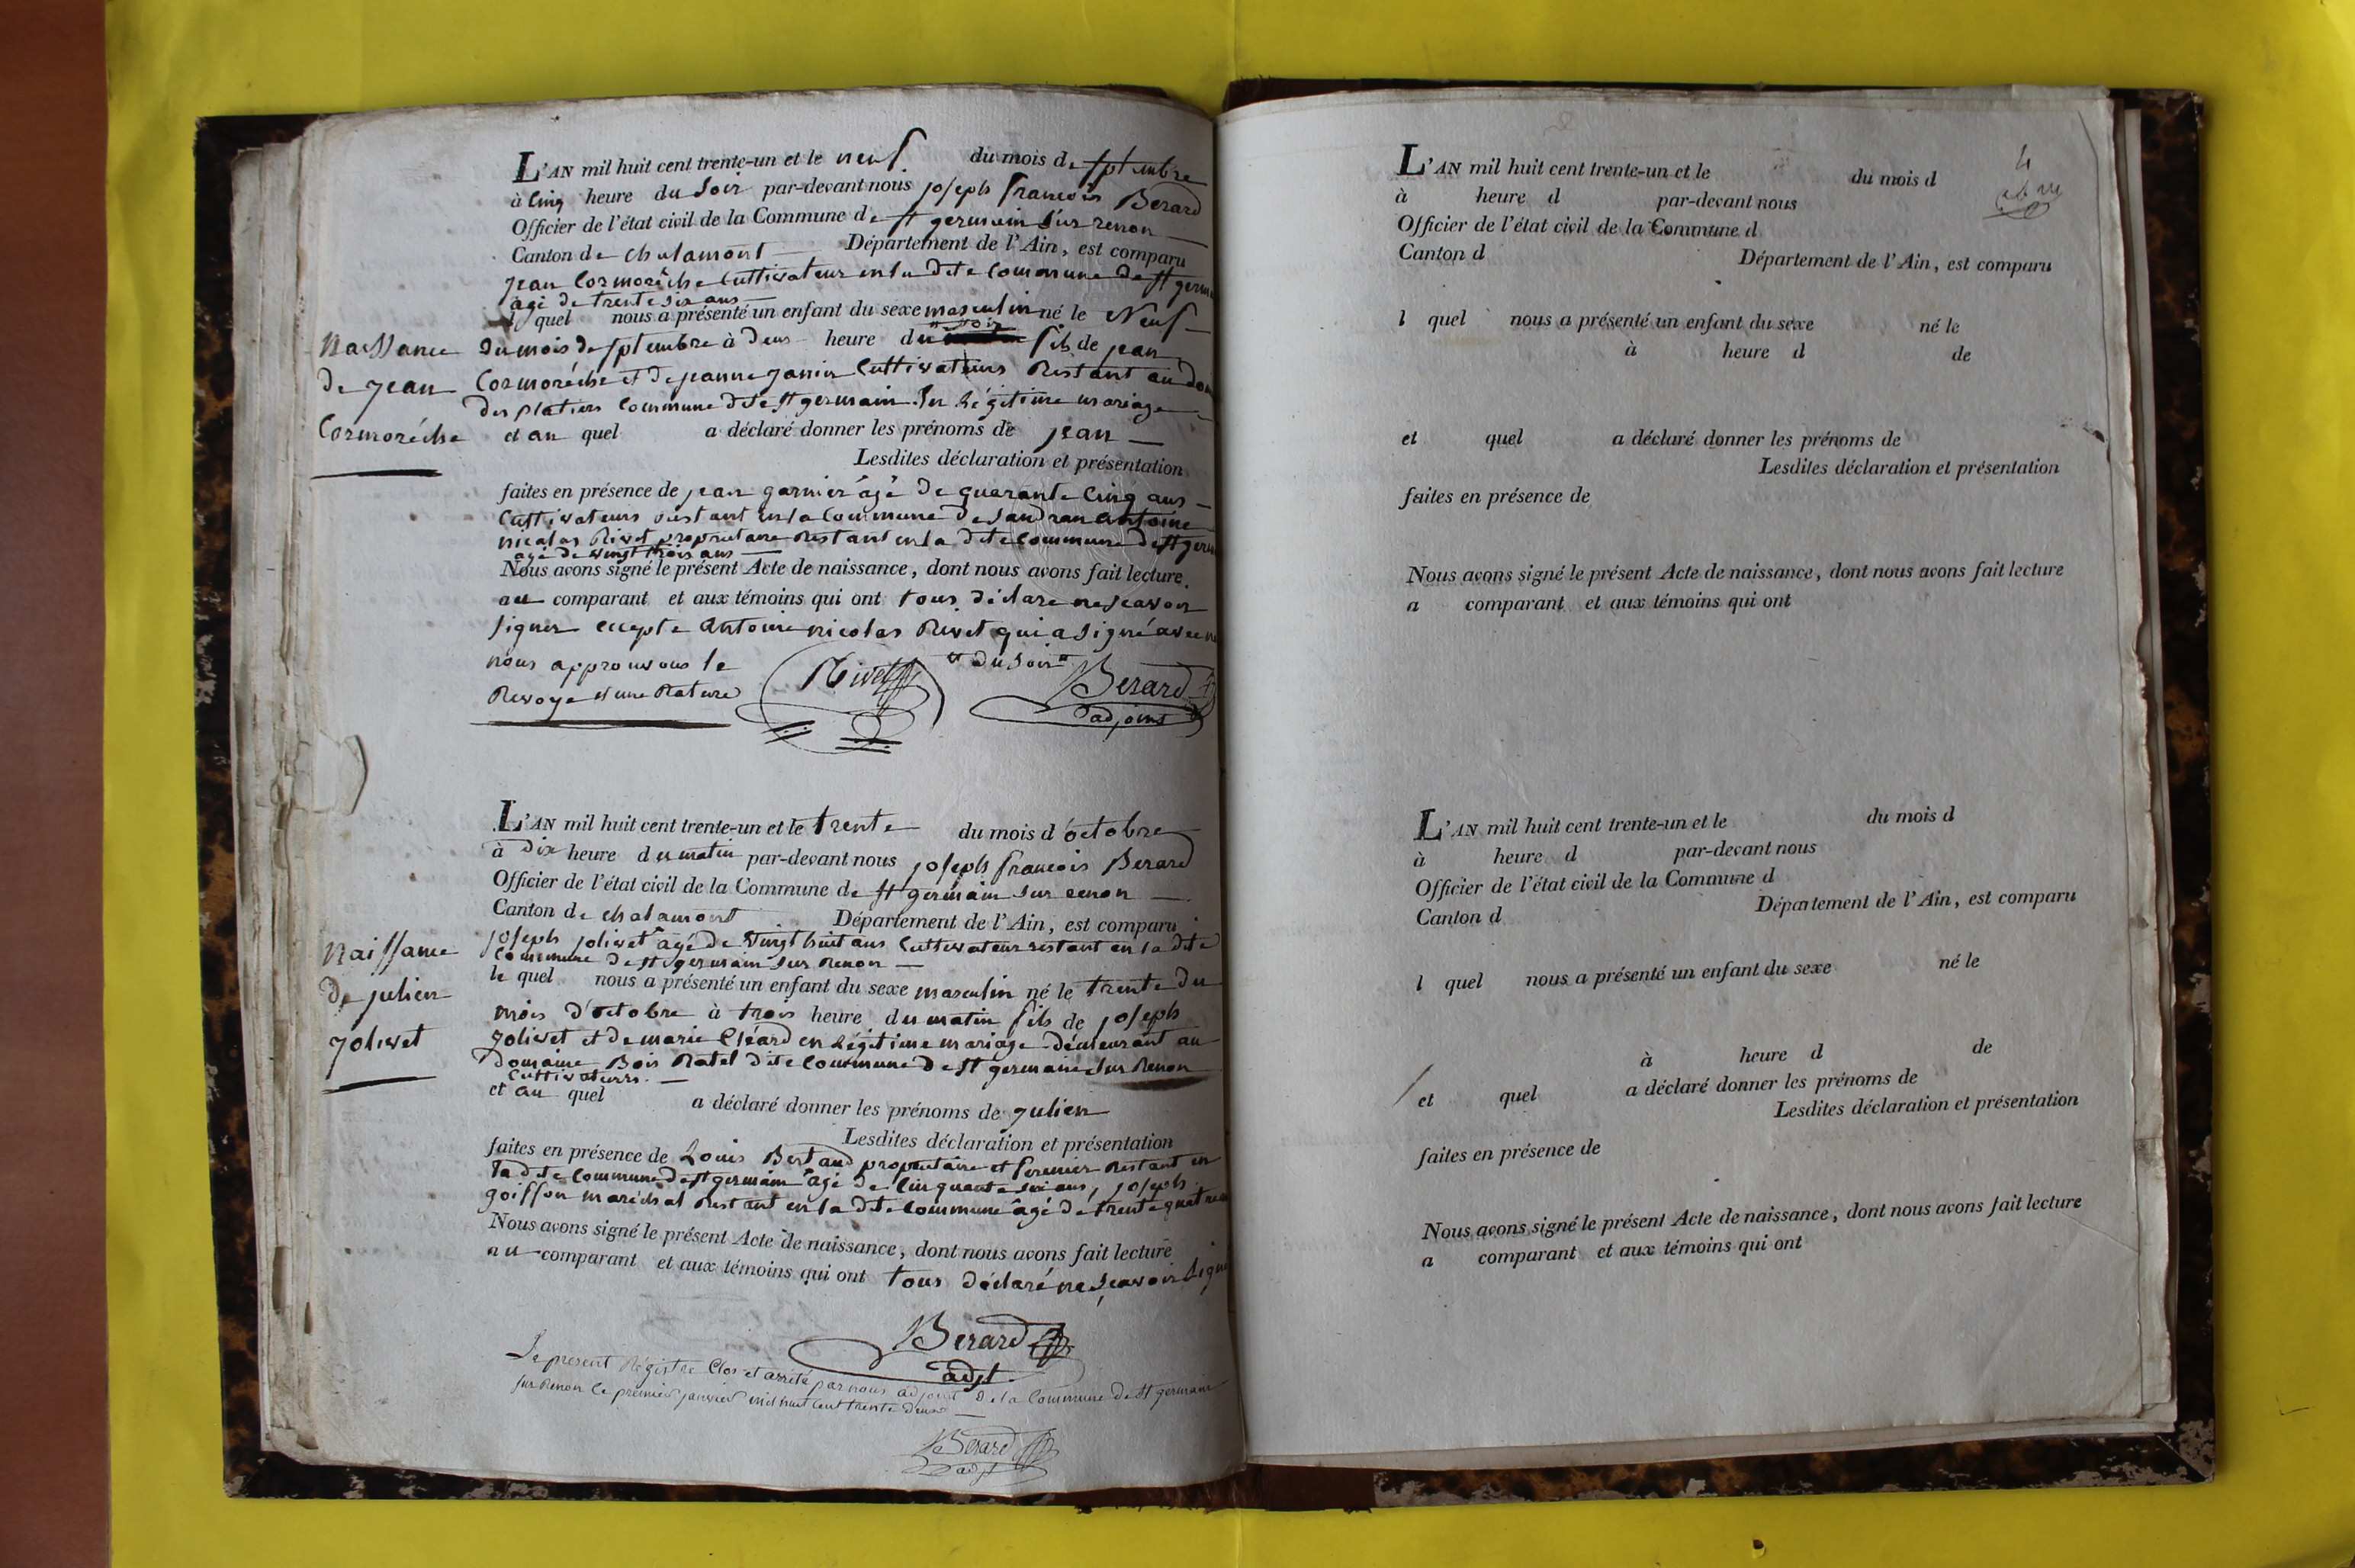 L'AN mil huit cent trente-un et le neuf du mois de septembre
à cinq heure du soir par-devant nous joseph francois Berard
Officier de l'état civil de la Commune de st germain sur renon
Canton de chalamont Département de l'Ain, est comparu
jean Cormorêche Cultivateur en la dite Commune de st germ
agé de trente six ans
l quel nous a présenté un enfant du sexe masculin né le Neuf
Naissance
du mois de septembre à deux heure du fils de jean
de jean
Cormoréche et de jeanne janin Cultivateurs Restant au do
des platieres Commune dite st germain En Légitime mariage
Cormoréche
et au quel a déclaré donner les prénoms de jean
Lesdites déclaration et présentation
faites en présence de jean garnier âgé de quarante Cinq ans
Cultivateurs restant en la Commune de sandran Antoine
nicolas Rivet propriétaire Restant en la dite Commune de st germ
agé de vingt trois ans
Nous avons signé le présent Acte de naissance, dont nous avons fait lecture
au comparant et aux témoins qui ont tous déclare ne scavoir
signer excepte Antoine nicolas Rivet qui a signé avec n
nous approuvons le
"du soir"
Renvoye et une Rature
Rivet
Berard
adjoint
L'AN mil huit cent trente-un et le trente du mois d'octobre
à dix heure du matin par-devant nous joseph francois Berard
Officier de l'état civil de la Commune de st germain sur renon
Canton de chalamont Département de l'Ain, est comparu
joseph jolivet âgé de vingt huit ans Cultivateur restant en la dite
Commune de st germain sur Renon
Naissance
le quel nous a présenté un enfant du sexe masculin né le trente du
de julien
mois d'octobre à trois heure du matin fils de joseph
jolivet
jolivet et de marie Cléard en Légitime mariage demeurant au
domaine Bois Ratel dite Commune de st germain sur Renon
Cultivateurs
et au quel a déclaré donner les prénoms de julien
Lesdites déclaration et présentation
faites en présence de Louis Bertaud propriétaire et fermier Restant en
la dite Commune de st germain âgé de Cinquante six ans, joseph
goiffon maréchal Restant en la dite Commune âgé de trente quatre
Nous avons signé le présent Acte de naissance, dont nous avons fait lecture
au comparant et aux témoins qui ont tous déclaré ne scavoir signe
Berard
adjt
Le present Régistre Clos et arrêté par nous adjoint de la Commune de st germain
sur Renon le premier janvier mil huit cent trente deux
Berard
adjt
4
L'AN mil huit cent trente-un et le du mois d
à heure d par-devant nous
Officier de l'état civil de la Commune d
Canton d Département de l'Ain, est comparu
l quel nous a présenté un enfant du sexe né le
à heure d de
et quel a déclaré donner les prénoms de
Lesdites déclaration et présentation
faites en présence de
Nous avons signé le présent Acte de naissance, dont nous avons fait lecture
a comparant et aux témoins qui ont
L'AN mil huit cent trente-un et le du mois d
à heure d par-devant nous
Officier de l'état civil de la Commune d
Canton d Département de l'Ain, est comparu
l quel nous a présenté un enfant du sexe né le
à heure d de
et quel a déclaré donner les prénoms de
Lesdites déclaration et présentation
faites en présence de
Nous avons signé le présent Acte de naissance, dont nous avons fait lecture
a comparant et aux témoins qui ont